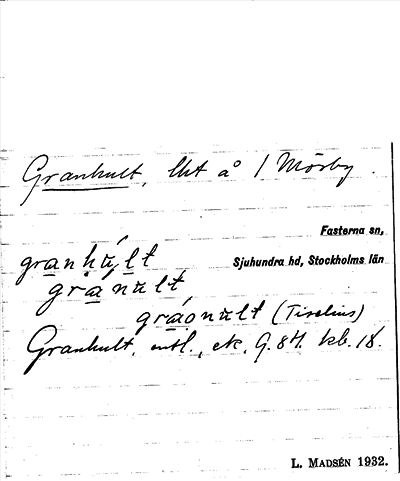 Granhult, lht å / Mörby.
Fasterna sn,
granhu̇lt Sjuhundra hd, Stockholms län
granult
gráonult (Tiselius)
Granhult, entl., ek. 9.84. kb. 18.
L. MADSÉN 1932.